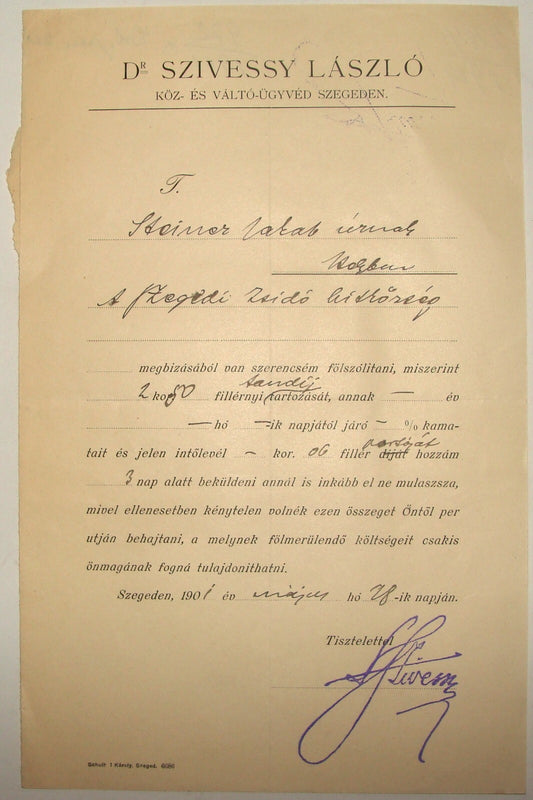 DR SZIVESSY LÁSZLÓ
KÖZ- ÉS VÁLTÓ-ÜGYVÉD SZEGEDEN.
T.
Steiner Jakab úrnak
Helyben
A Szegedi Zsidó hitközség
megbizásából van szerencsém fölszólitani, miszerint
tandíj
2 kor 80 fillérnyi tartozását, annak — év
— hó — -ik napjától járó — % kama-
portóját
tait és jelen intőlevél — kor. 06 fillér diját hozzám
3 nap alatt beküldeni annál is inkább el ne mulaszsza,
mivel ellenesetben kénytelen volnék ezen összeget Öntől per
utján behajtani, a melynek fölmerülendő költségeit csakis
önmagának fogná tulajdonithatni.
Szegeden, 1901 év május hó 28-ik napján.
Tisztelettel
Dr. Szivessy
Schulhof Károly, Szeged. 6086